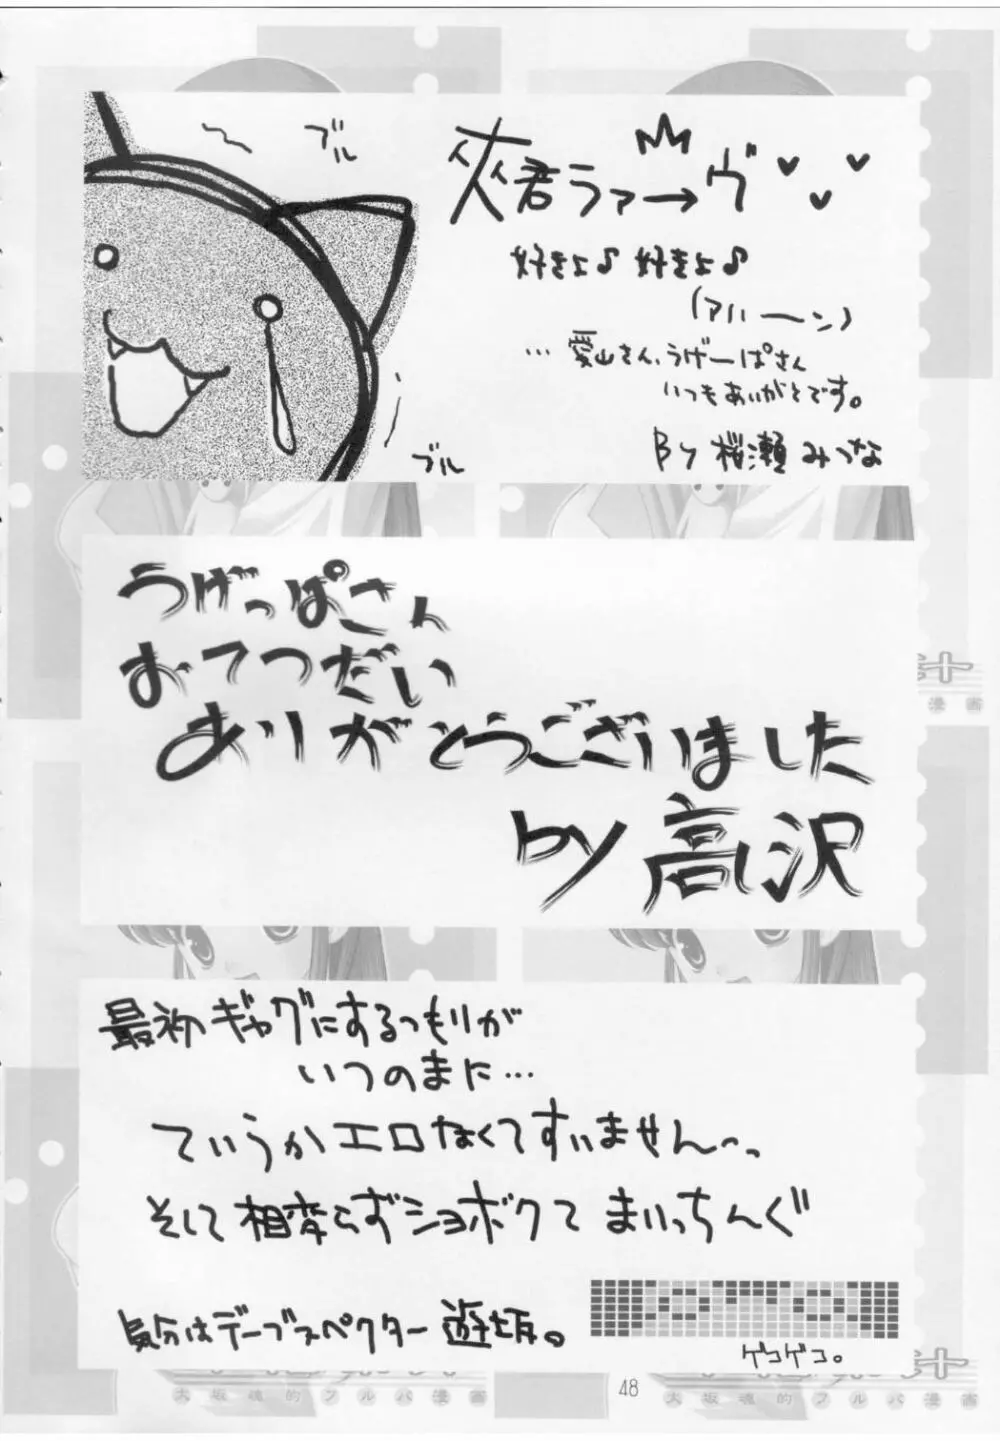 ブル
夾君ラァーヴ
好きよ♪ 好きよ♪
(アハーン)
… 愛山さん、うげーぱさん
いつもありがとです。
By 桜瀬みつな
ブル
うげっぱさん
おてつだい
ありがとうございました
by 高沢
最初ギャグにするつもりが
いつのまに…
ていうかエロなくてすいません〜っ
そして相変らずショボクて まいっちんぐ
気分はデーブスペクター 遊坂。
ゲコゲコ。
汁
漫画
汁
大坂魂的フルバ漫画
48
大坂魂的フルバ漫画